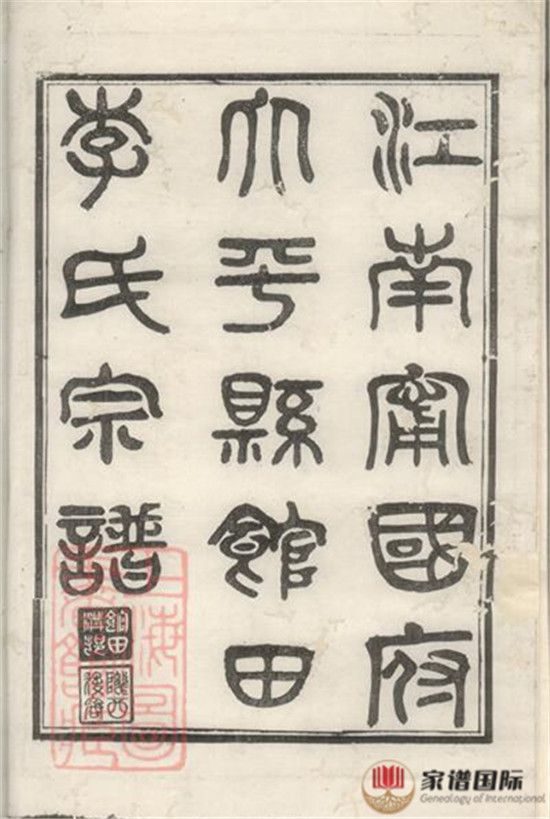 江南甯國府
太平縣館田
李氏宗譜
上海圖
書館藏
家谱国际
Genealogy of International